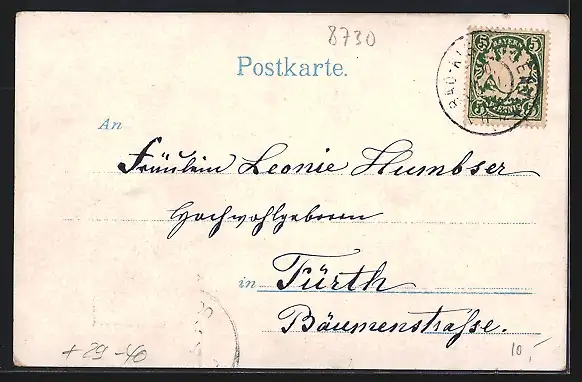 8730
Postkarte.
BAYERN
5 5
5 PFENNIG 5
BAD KI EN
An
Fräulein Leonie Humbser
Hochwohlgeboren
in Fürth
Bäumenstraße.
+29-40
10,-